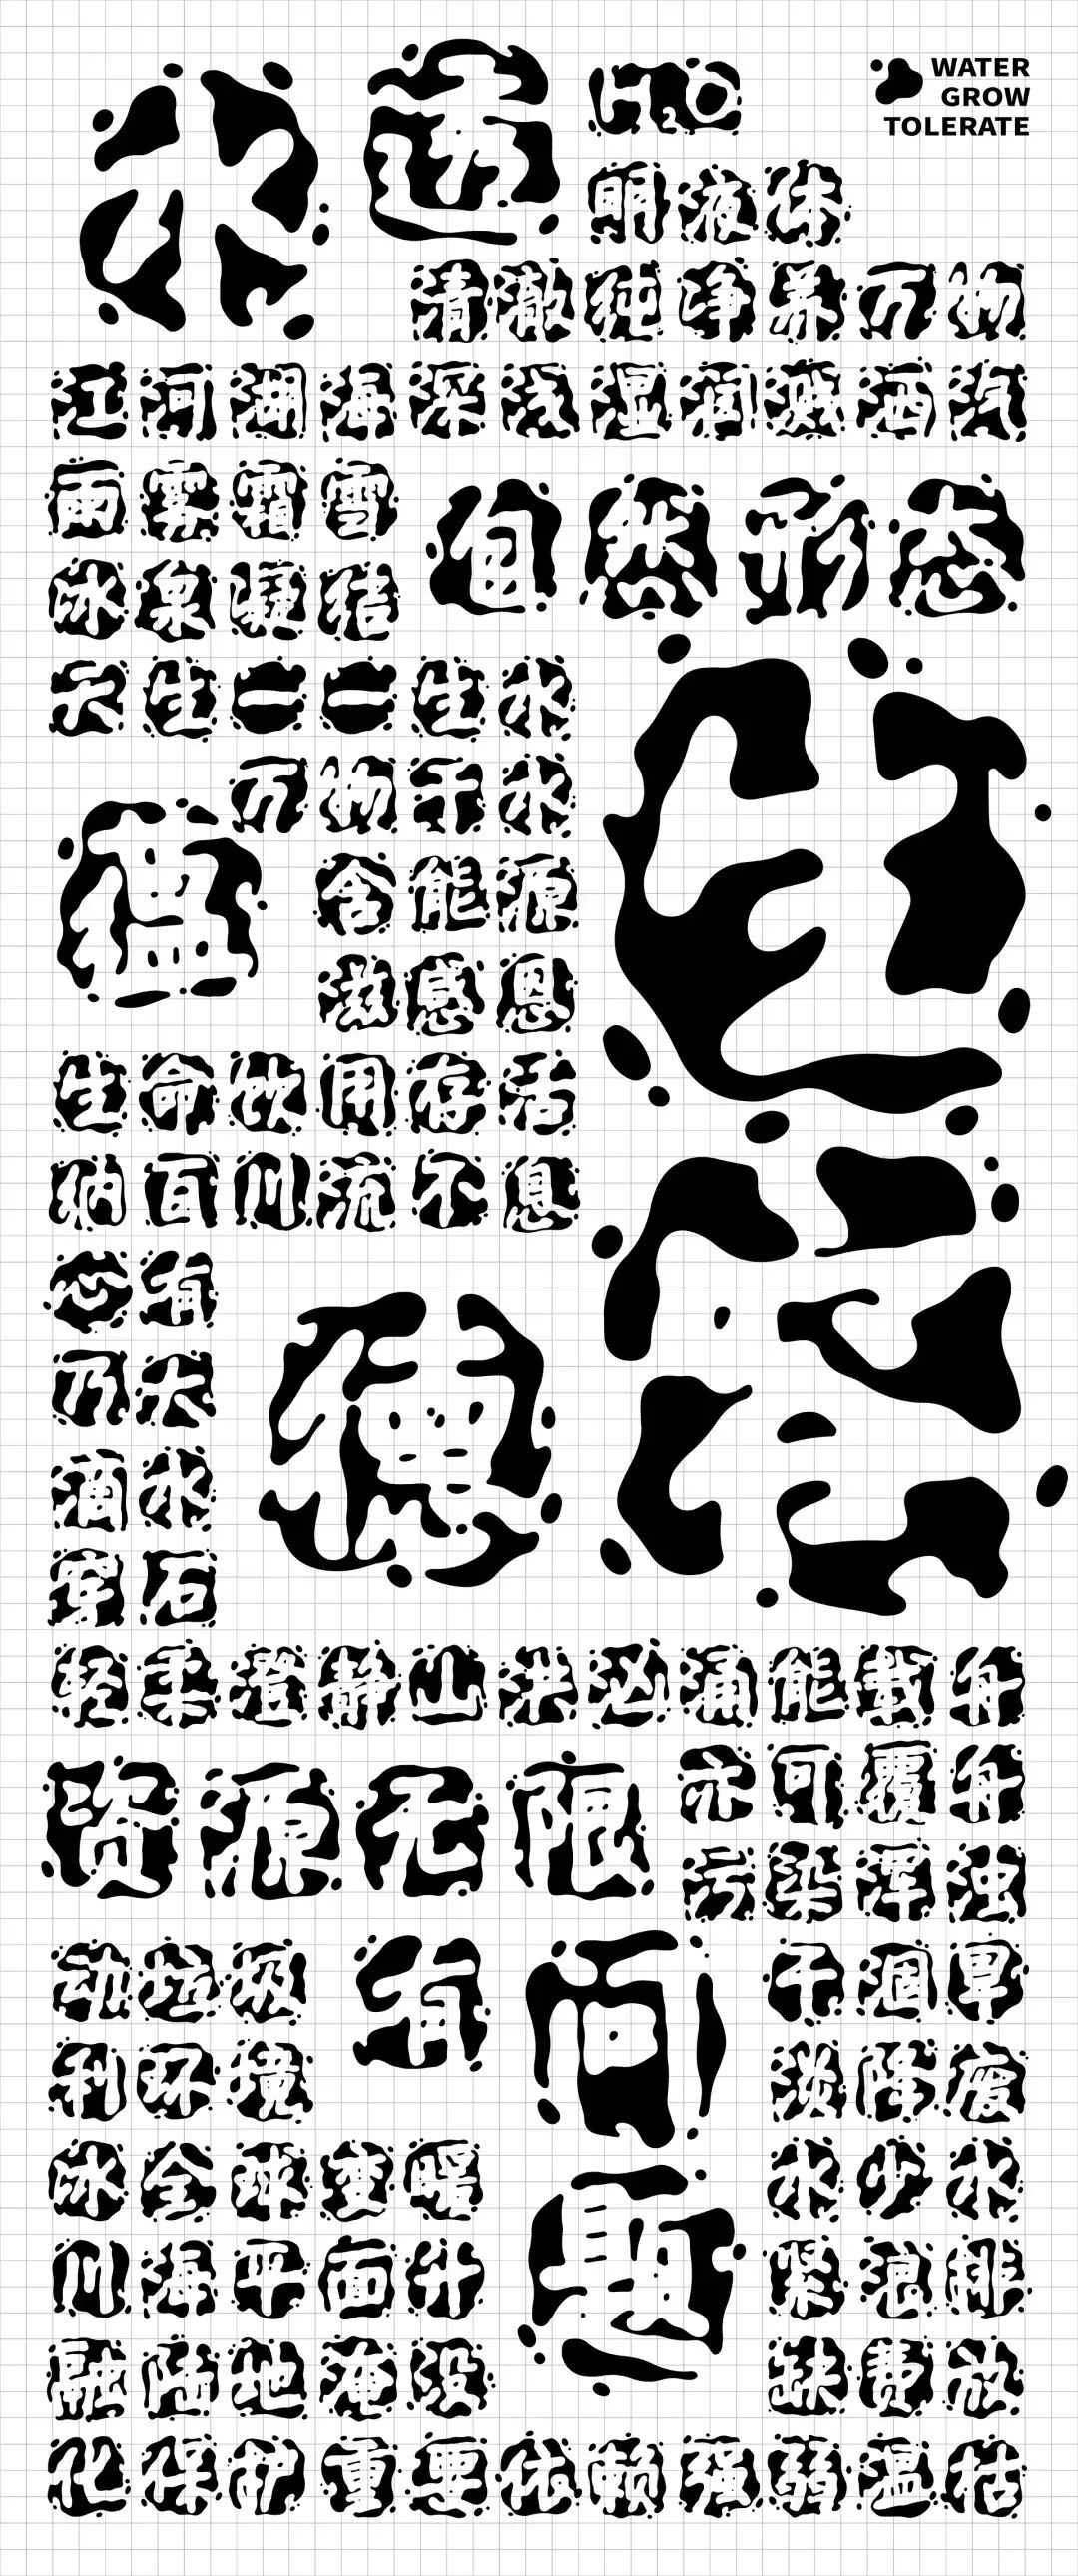 水透
H₂O
WATER
GROW
TOLERATE
明液体
清澈纯净养万物
江河湖海深浅湿润溅洒汽
雨雾霜雪
自然形态
冰泉凝结
天生一一生水
万物于水
含能源
滋感恩
生命饮用存活
纳百川流不息
心有
乃大
滴水
穿石
轻柔澄静山洪汹涌能载舟
资源无限
亦可覆舟
污染浑浊
垃圾
有
干涸旱
利环境
淡降废
冰全球变暖
水少水
川海平面升
紧浪排
融陆地淹没
缺费放
化保护重要依赖强弱温枯